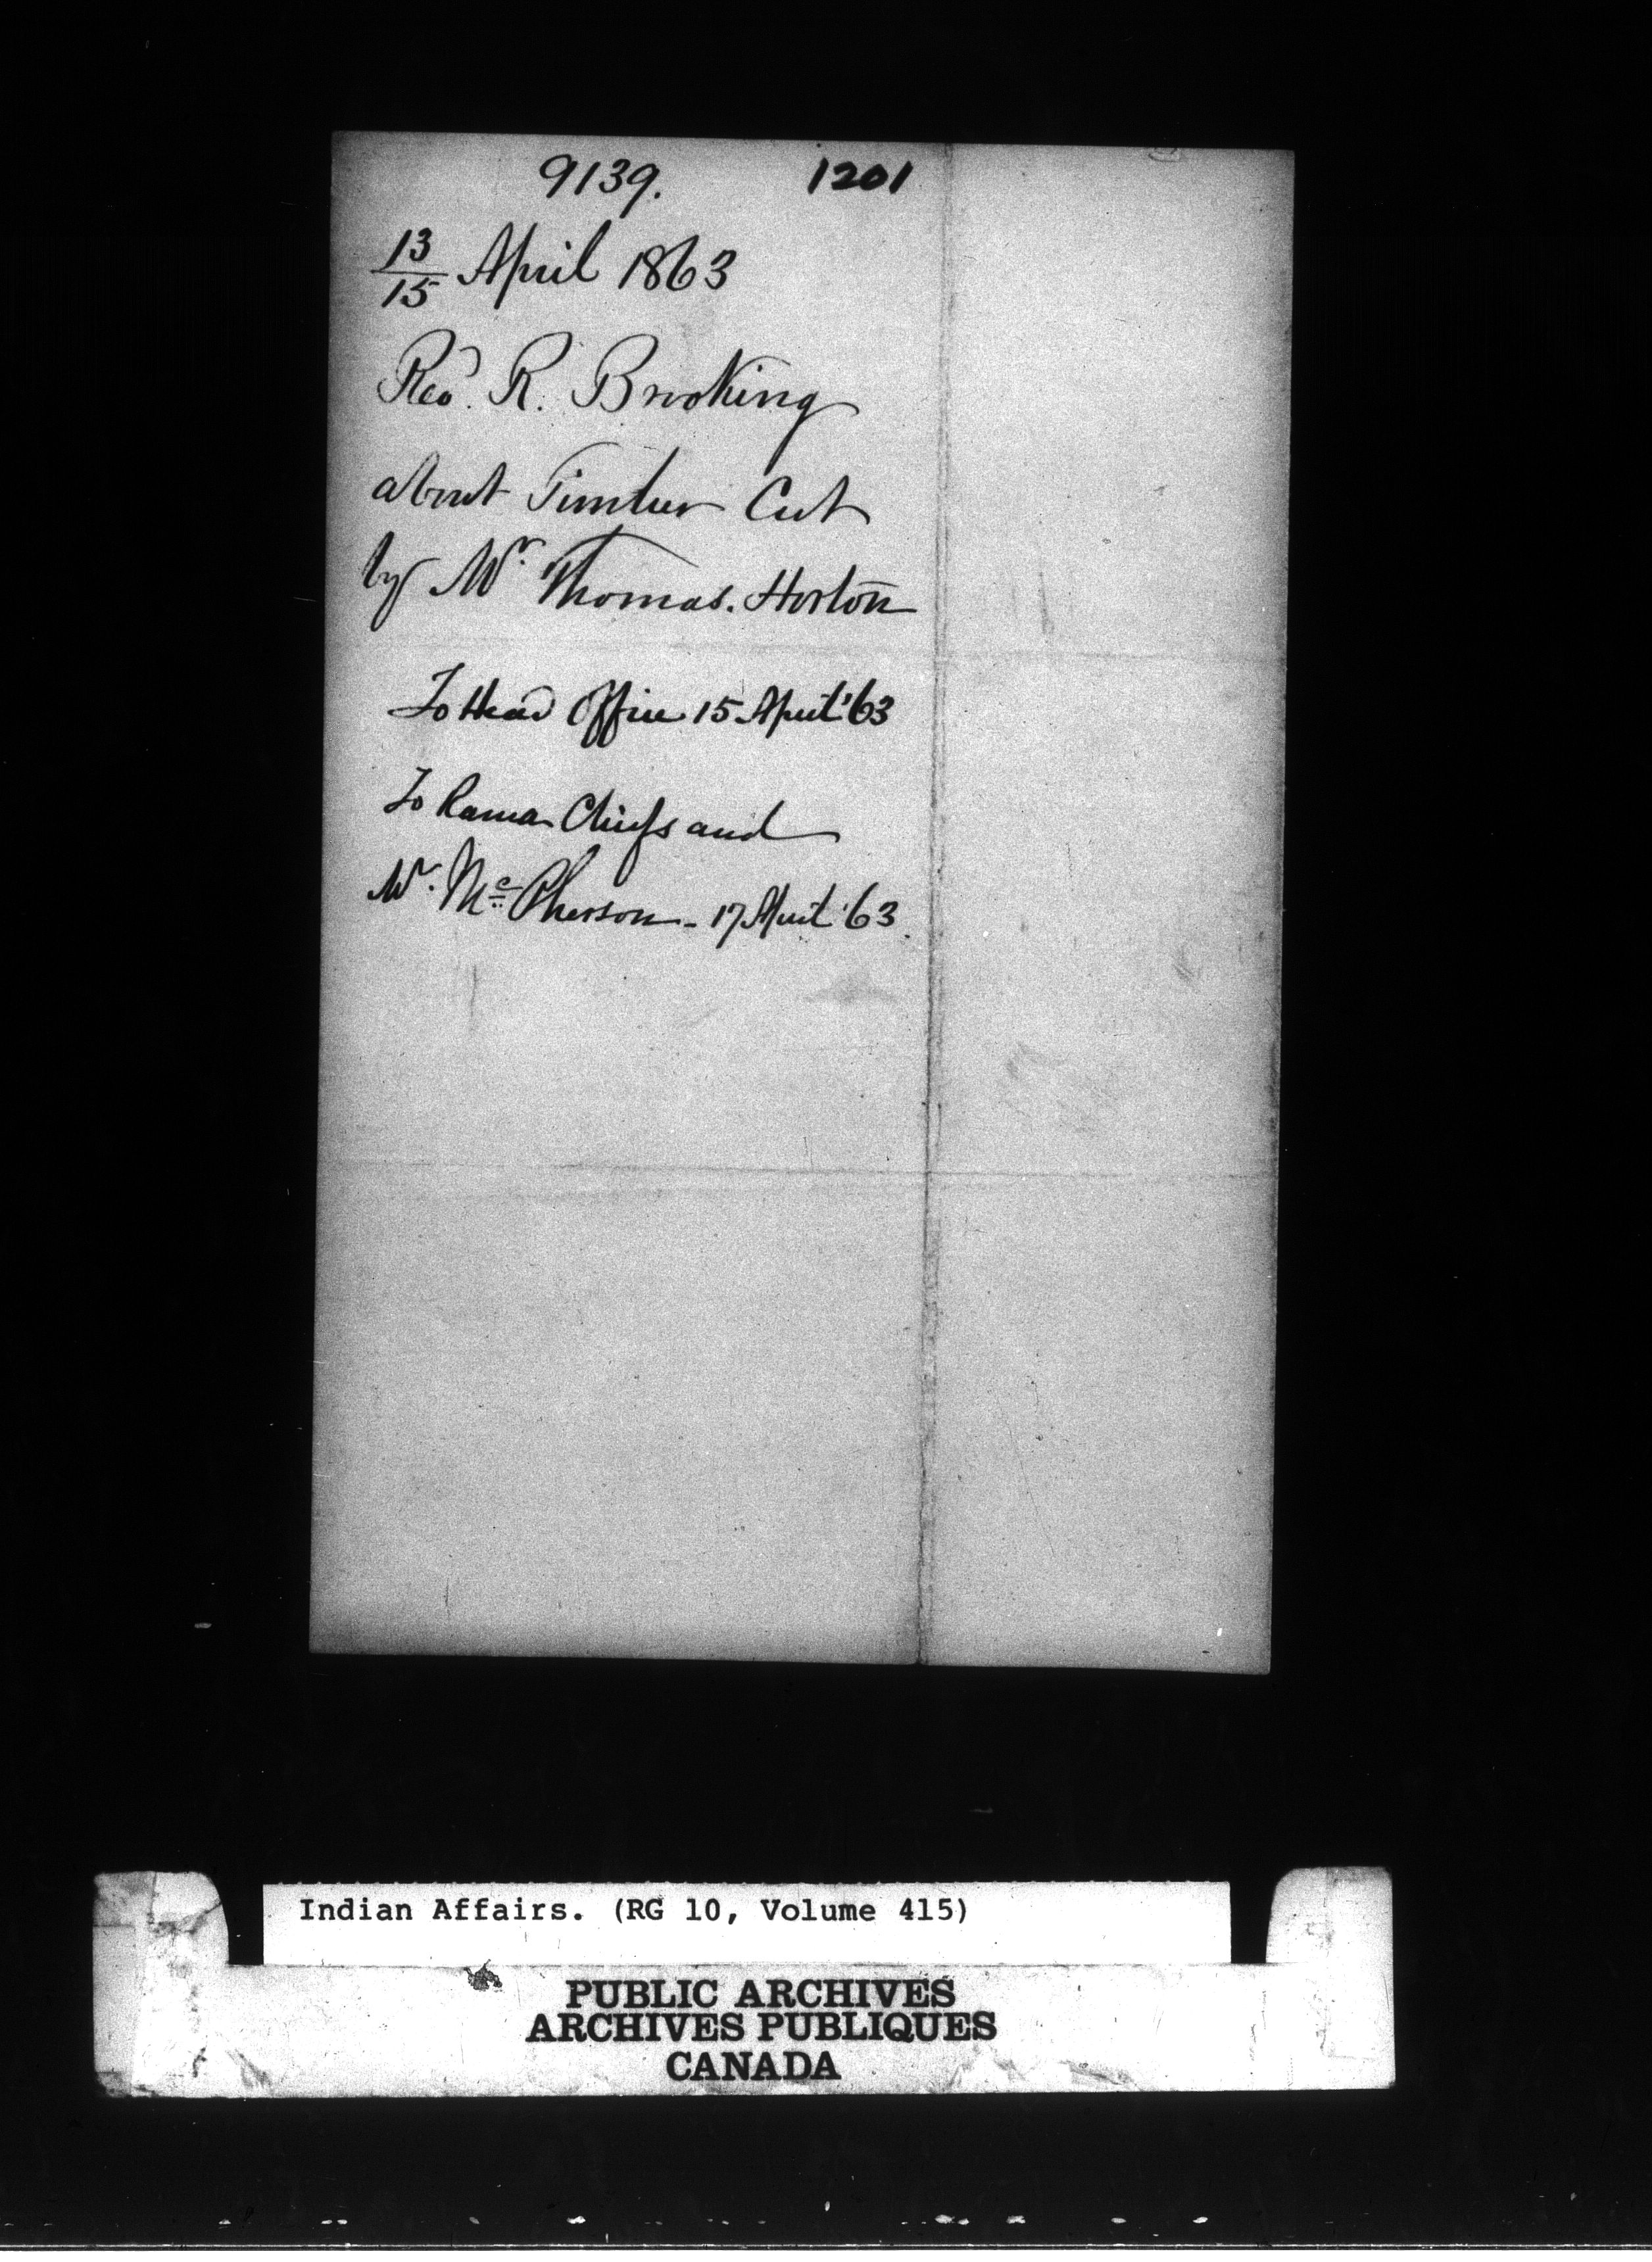 9139. 1201
13/15 April 1863
Revd. R. Brooking
about Timber Cut
by Mr. Thomas. Horton
To Head Office 15 April '63
To Rama Chiefs and
Mr. Mc Pherson - 17 April '63.
Indian Affairs. (RG 10, Volume 415)
PUBLIC ARCHIVES
ARCHIVES PUBLIQUES
CANADA